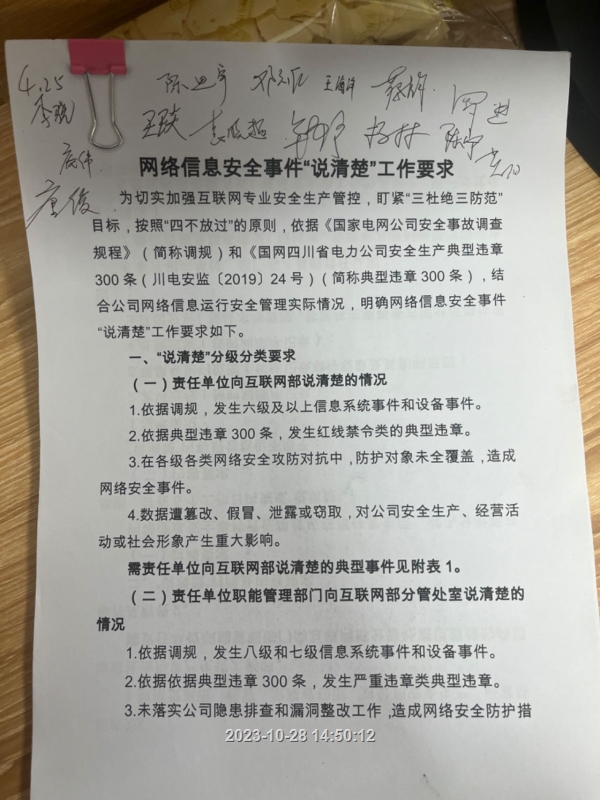 4.25
网络信息安全事件“说清楚”工作要求
为切实加强互联网专业安全生产管控，盯紧“三杜绝三防范”
目标，按照“四不放过”的原则，依据《国家电网公司安全事故调查
规程》（简称调规）和《国网四川省电力公司安全生产典型违章
300条（川电安监〔2019〕24号）（简称典型违章300条），结
合公司网络信息运行安全管理实际情况，明确网络信息安全事件
“说清楚”工作要求如下。
一、“说清楚”分级分类要求
（一）责任单位向互联网部说清楚的情况
1.依据调规，发生六级及以上信息系统事件和设备事件。
2.依据典型违章300条，发生红线禁令类的典型违章。
3.在各级各类网络安全攻防对抗中，防护对象未全覆盖，造成
网络安全事件。
4.数据遭篡改、假冒、泄露或窃取，对公司安全生产、经营活
动或社会形象产生重大影响。
需责任单位向互联网部说清楚的典型事件见附表1。
（二）责任单位职能管理部门向互联网部分管处室说清楚的
情况
1.依据调规，发生八级和七级信息系统事件和设备事件。
2.依据依据典型违章300条，发生严重违章类典型违章。
3.未落实公司隐患排查和漏洞整改工作，造成网络安全防护措
2023-10-28 14:50:12